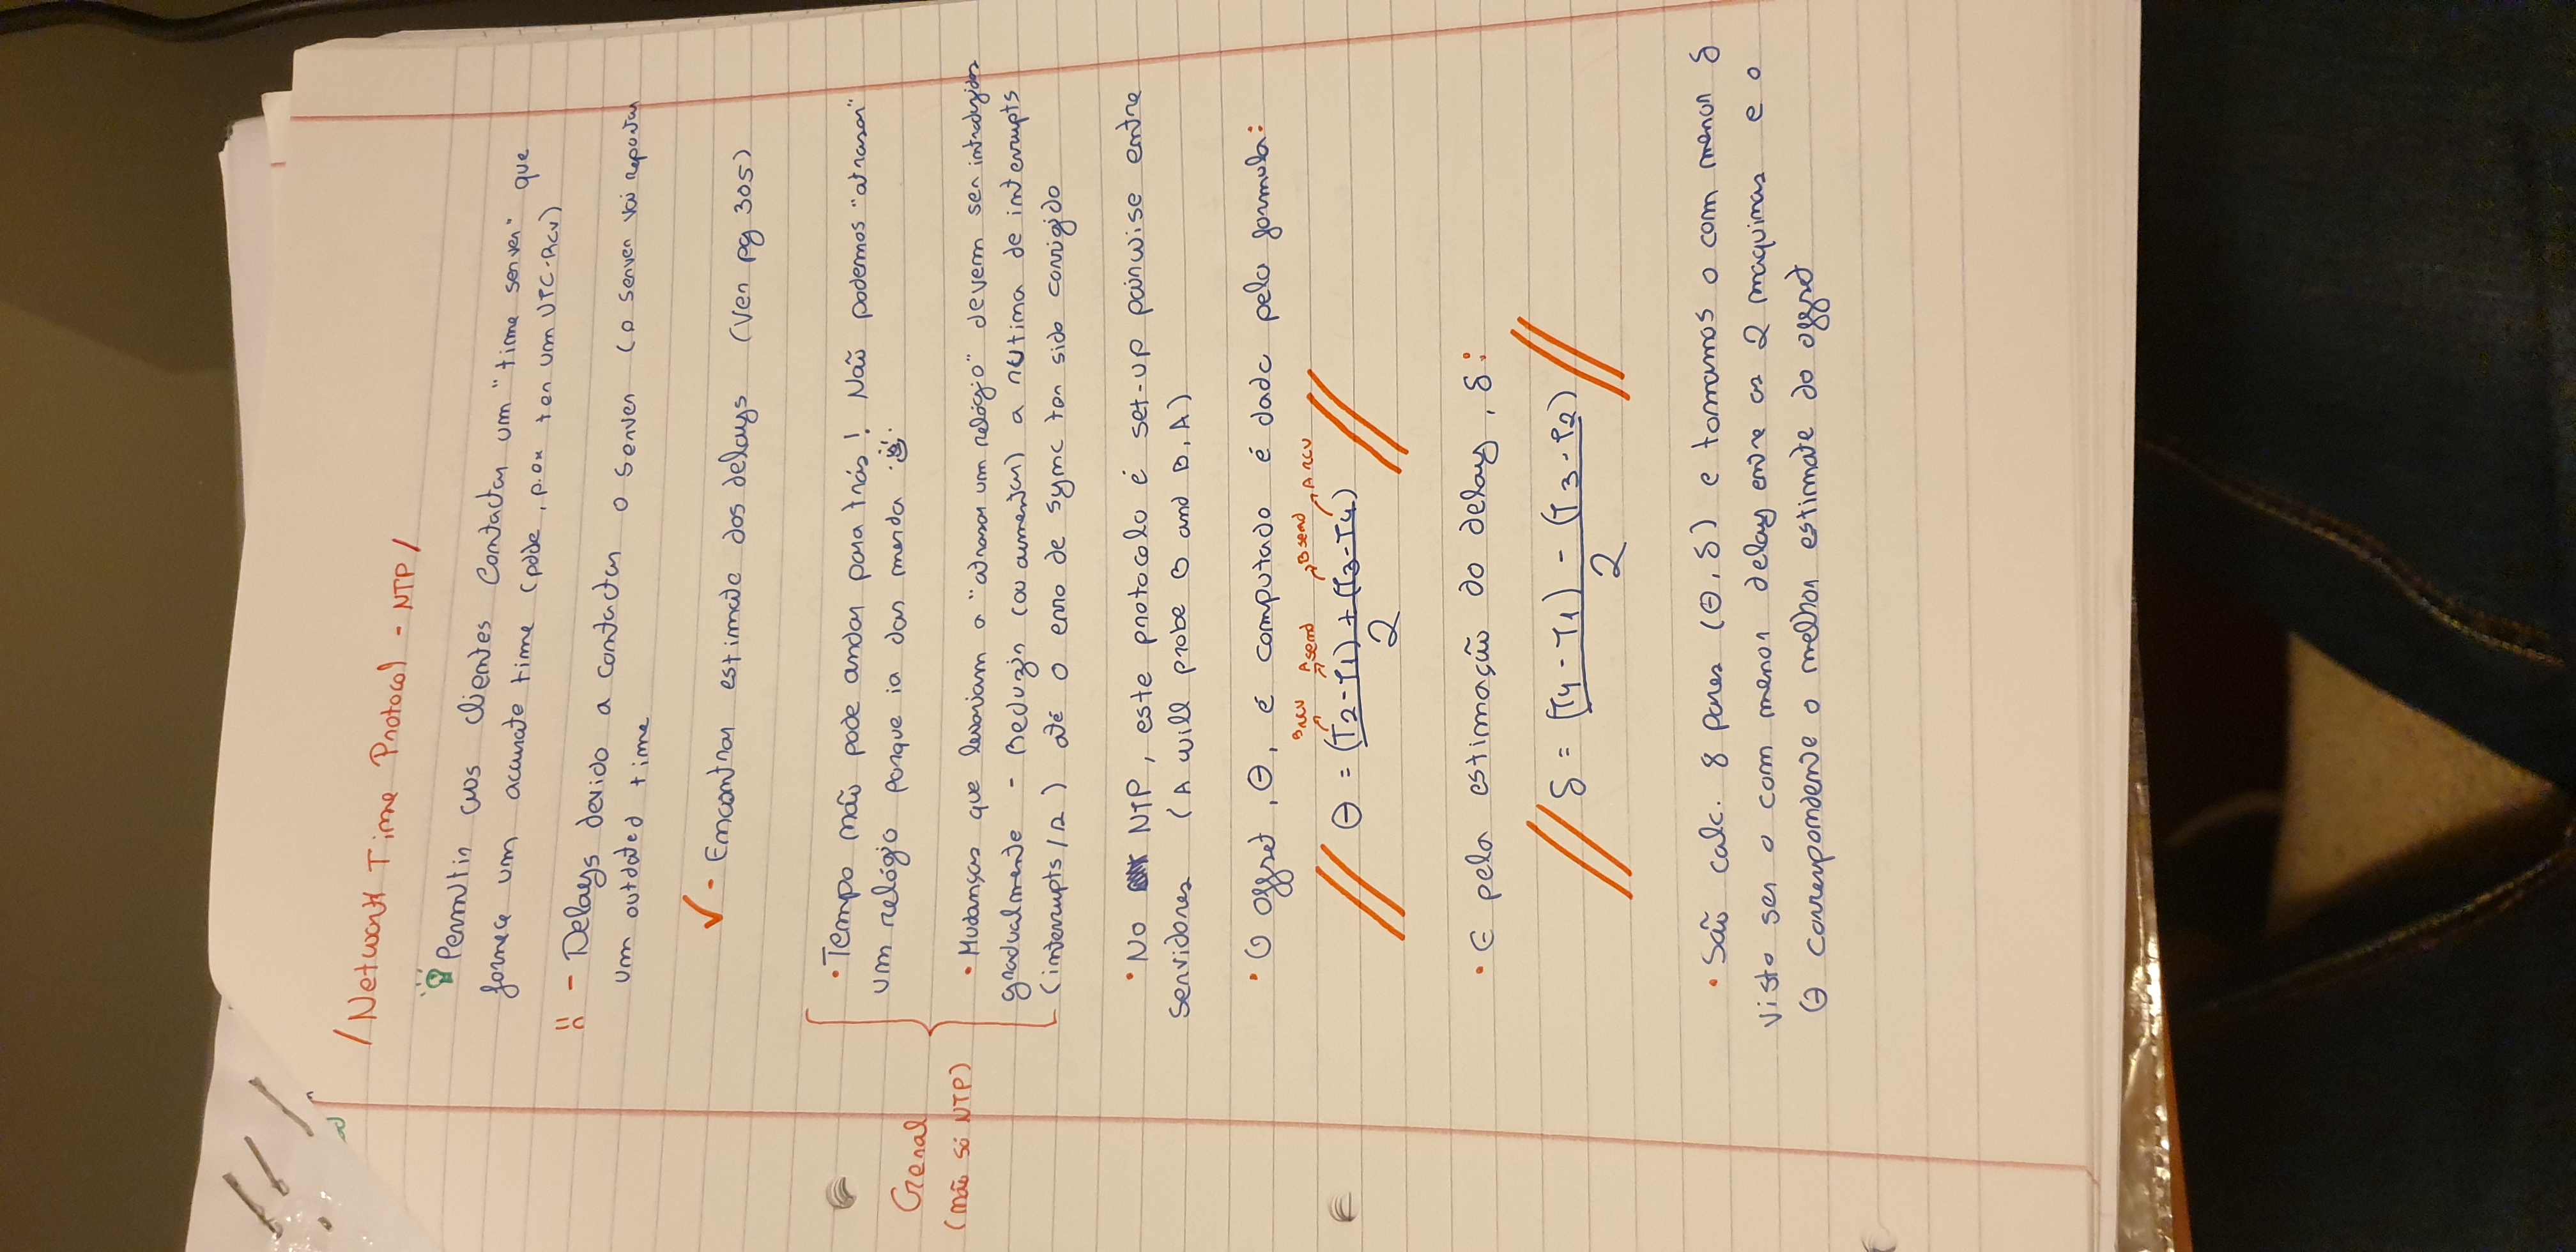 /Network Time Protocol - NTP/
Permitir aos clientes contactar um "time server" que
fornece um accurate time (pode, p.ex ter um UTC-Rcv)
- Delays devido a contactar o server (o server vai reportar
um outdated time
✓ - Encontrar estimate dos delays (Ver pg 305)
• Tempo não pode andar para trás! Não podemos "atrasar"
um relógio porque ia dar merda
Geral
(não só NTP)
• Mudanças que levariam a "atrasar um relógio" devem ser introduzidas
gradualmente - Reduzir (ou aumentar) a rutima de interrupts
(interrupts/s) até o erro de sync ter sido corrigido
• No NTP, este protocolo é set-up pairwise entre
servidores (A will probe B and B, A)
• O offset, θ, é computado é dado pela formula:
B rcv A send B send A rcv
// θ = (T2-T1) + (T3-T4) //
2
• E pela estimação do delay, δ:
// δ = (T4-T1) - (T3-T2) //
2
• São calc. 8 pares (θ, δ) e tomamos o com menor δ
visto ser o com menor delay entre as 2 maquinas e o
θ correspondente o melhor estimate do offset